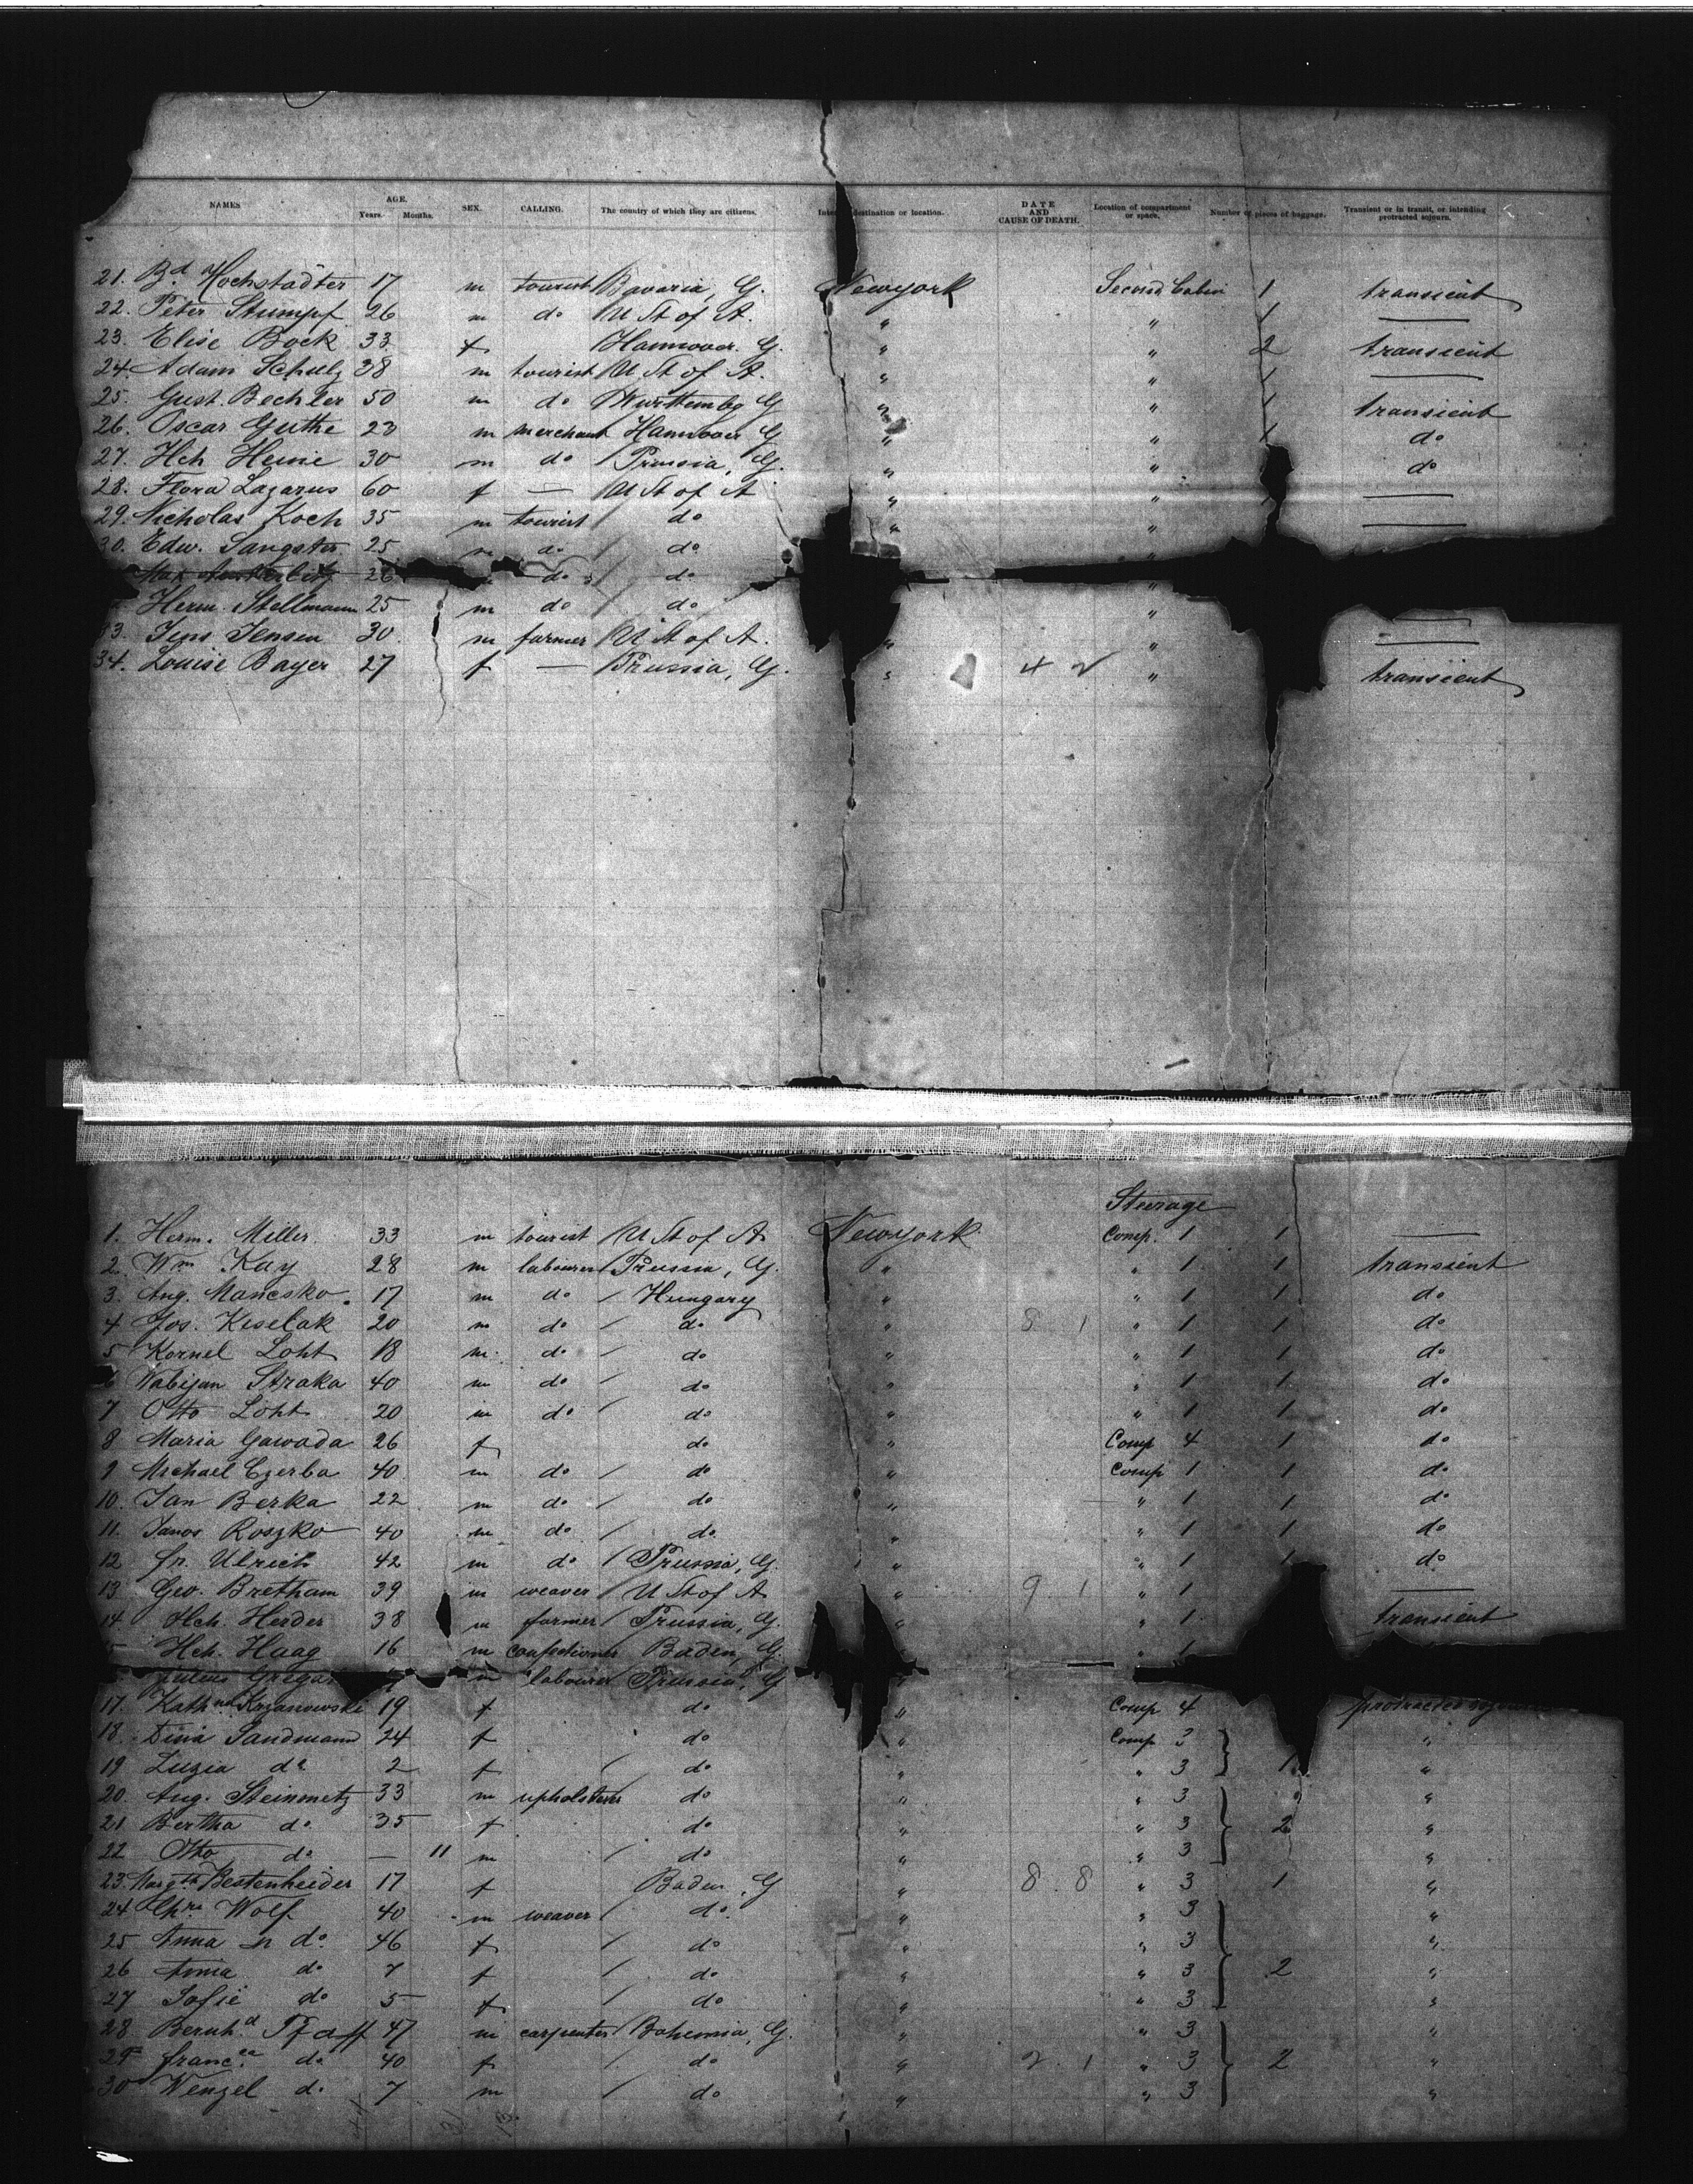 NAMES AGE. Years. Months. SEX. CALLING. The country of which they are citizens. destination or location. DATE AND CAUSE OF DEATH. Location of compartment or space. Number of pieces of baggage. Transient or in transit, or intending protracted sojourn.
21. Bd. Hochstädter 17 m tourist Bavaria, G. Newyork Second Cabin 1 transient
22. Peter Stumpf 26 m do U St of A. " " 1 —
23. Elise Bock 33 f Hannover. G. " " 2 transient
24. Adam Schulz 38 m tourist U St of A. " " 1 —
25. Gust. Bechler 50 m do Württembg G " " 1 transient
26. Oscar Guthe 23 m merchant Hannover G " " 1 do
27. Hch Heine 30 m do Prussia, G. " " do
28. Flora Lazarus 60 f — U St of A " " —
29. Nicholas Koch 35 m tourist do " " —
30. Edw. Sangster 25 m do do "
Max 26 do do "
Herm. Stellmann 25 m do do " —
33. Jens Jensen 30 m farmer U St of A. " " —
34. Louise Bayer 27 f — Prussia, G. " 4 2 " transient
Steerage
1. Herm. Miller 33 m tourist U St of A Newyork Comp. 1 1 —
2. Wm Kay 28 m labourer Prussia, G. " " 1 1 transient
3. Aug. Manesko 17 m do Hungary " " 1 1 do
4 Jos. Keselak 20 m do do " 8 1 " 1 1 do
5 Kornel Loht 18 m. do do " " 1 1 do
6 Wabijan Straka 40 m do do " " 1 1 do
7 Otto Loht 20 m do do " " 1 1 do
8 Maria Gawada 26 f do " Comp 4 1 do
9 Michael Czerba 40 m do do " Comp 1 1 do
10. Jan Berka 22 m do do " " 1 1 do
11. Janos Roszko 40 m do do " " 1 1 do
12 Fr. Ulrich 42 m do Prussia, G. " " 1 1 do
13. Geo. Bretham 39 m weaver U St of A " 9 1 " 1 —
14. Hch. Herder 38 m farmer Prussia, G. " " 1 transient
Hch. Haag 16 m confectioner Baden, G. " 1
Julius m labourer Prussia, G "
17. Kathna Kazanowski 19 f do " Comp 4 protracted
18. Dina Sandmann 24 f do " Comp 3 "
19 Luzia do 2 f do " " 3 1 "
20. Aug. Steinmetz 33 m upholsterer do " " 3 "
21 Bertha do 35 f do " " 3 2 "
22 Otto do — 11 m do " " 3 "
23. Margth Bestenheider 17 f Baden, G " 8 8 " 3 1 "
24 Chrn Wolf 40 m weaver do " " 3 "
25 Anna do 46 f do " " 3 "
26 Anna do 7 f do " " 3 2 "
27 Sofie do 5 f do " " 3 "
28 Bernhd Pfaff 47 m carpenter Bohemia, G. " " 3 "
29 Francca do 40 f do " 2 1 " 3 2 "
30 Wenzel do 7 m do " " 3 "